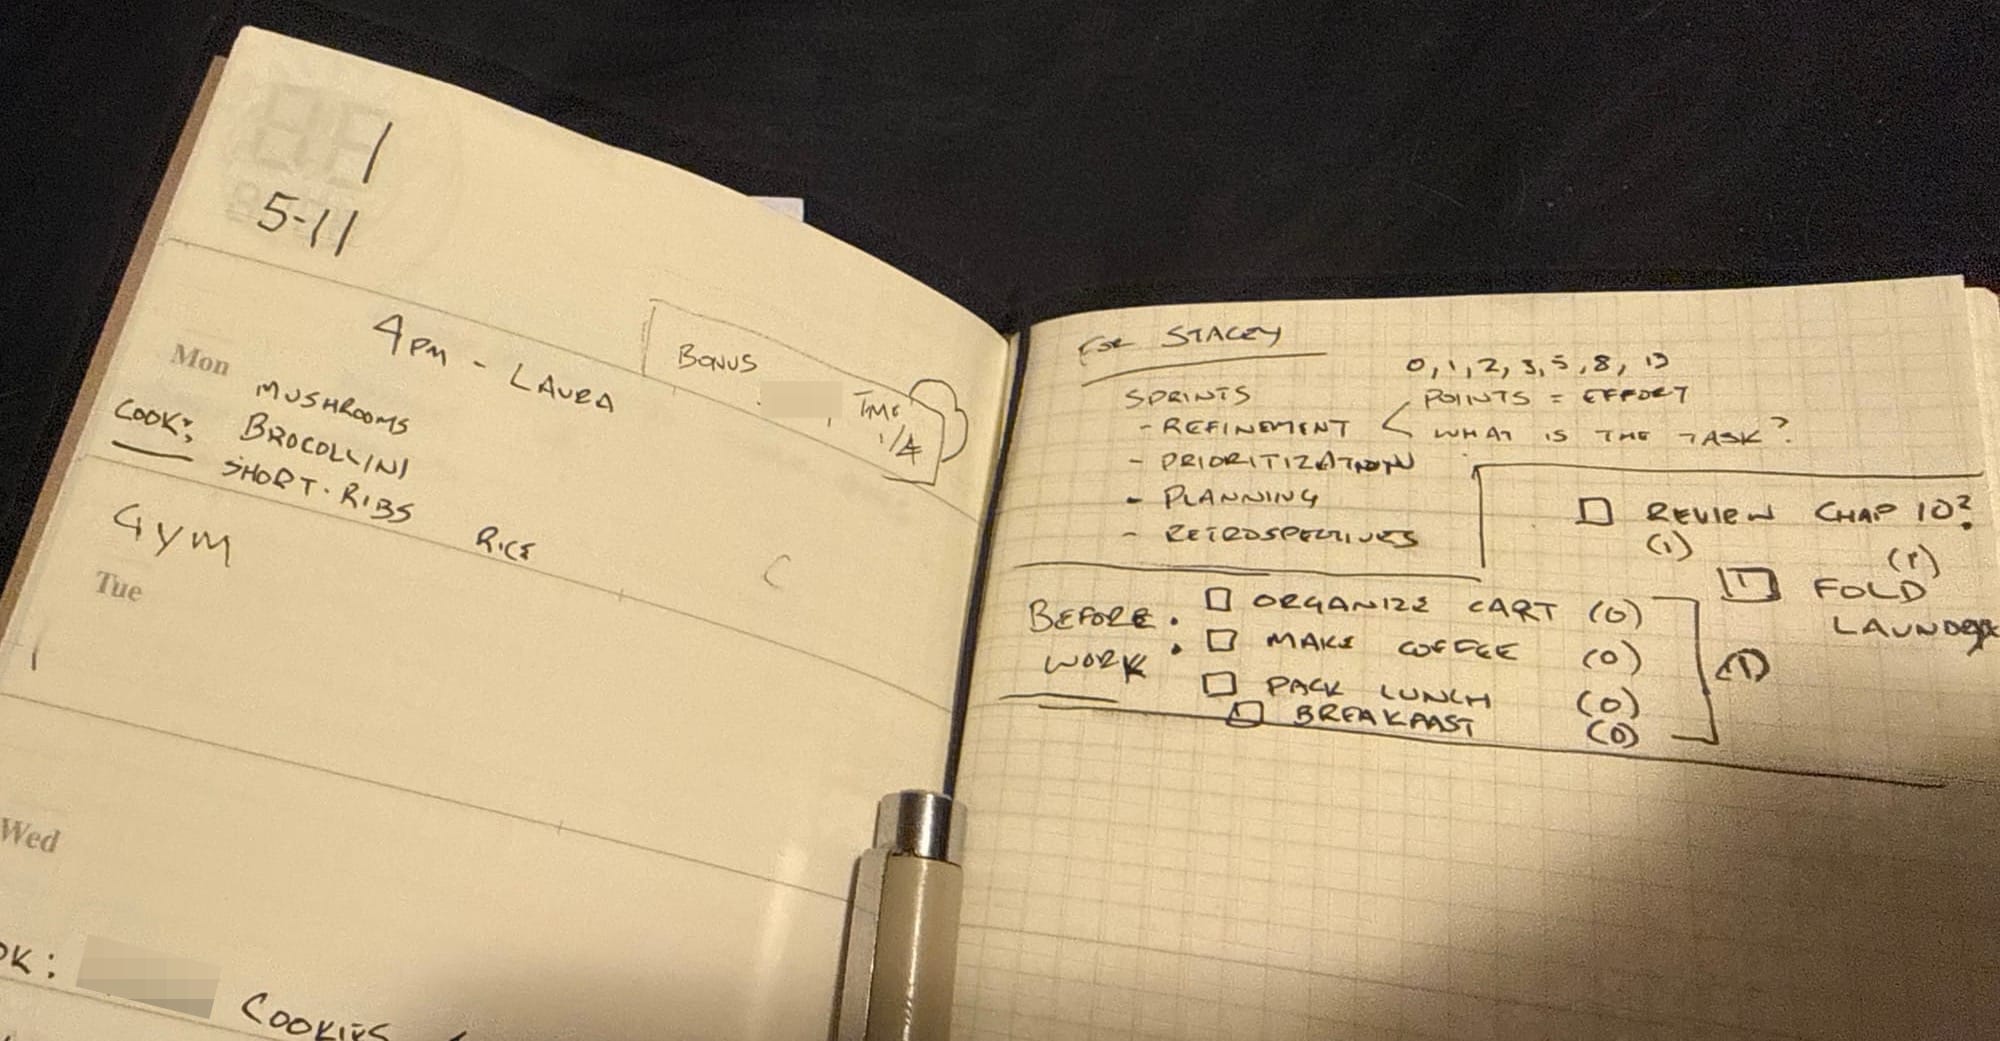 1
5-11
Mon
4PM - LAURA
BONUS
TMC
1/4
COOK: MUSHROOMS
BROCOLLINI
SHORT-RIBS
RICE
GYM
Tue
Wed
OK:
COOKIES
FOR STACEY
0, 1, 2, 3, 5, 8, 13
SPRINTS
POINTS = EFFORT
- REFINEMENT < WHAT IS THE TASK?
- PRIORITIZATION
- PLANNING
- RETROSPECTIVES
REVIEW CHAP 10?
(1)
(1)
FOLD
LAUNDRY
BEFORE
WORK
ORGANIZE CART (0)
MAKE COFFEE (0)
PACK LUNCH (0)
BREAKFAST (0)
(1)